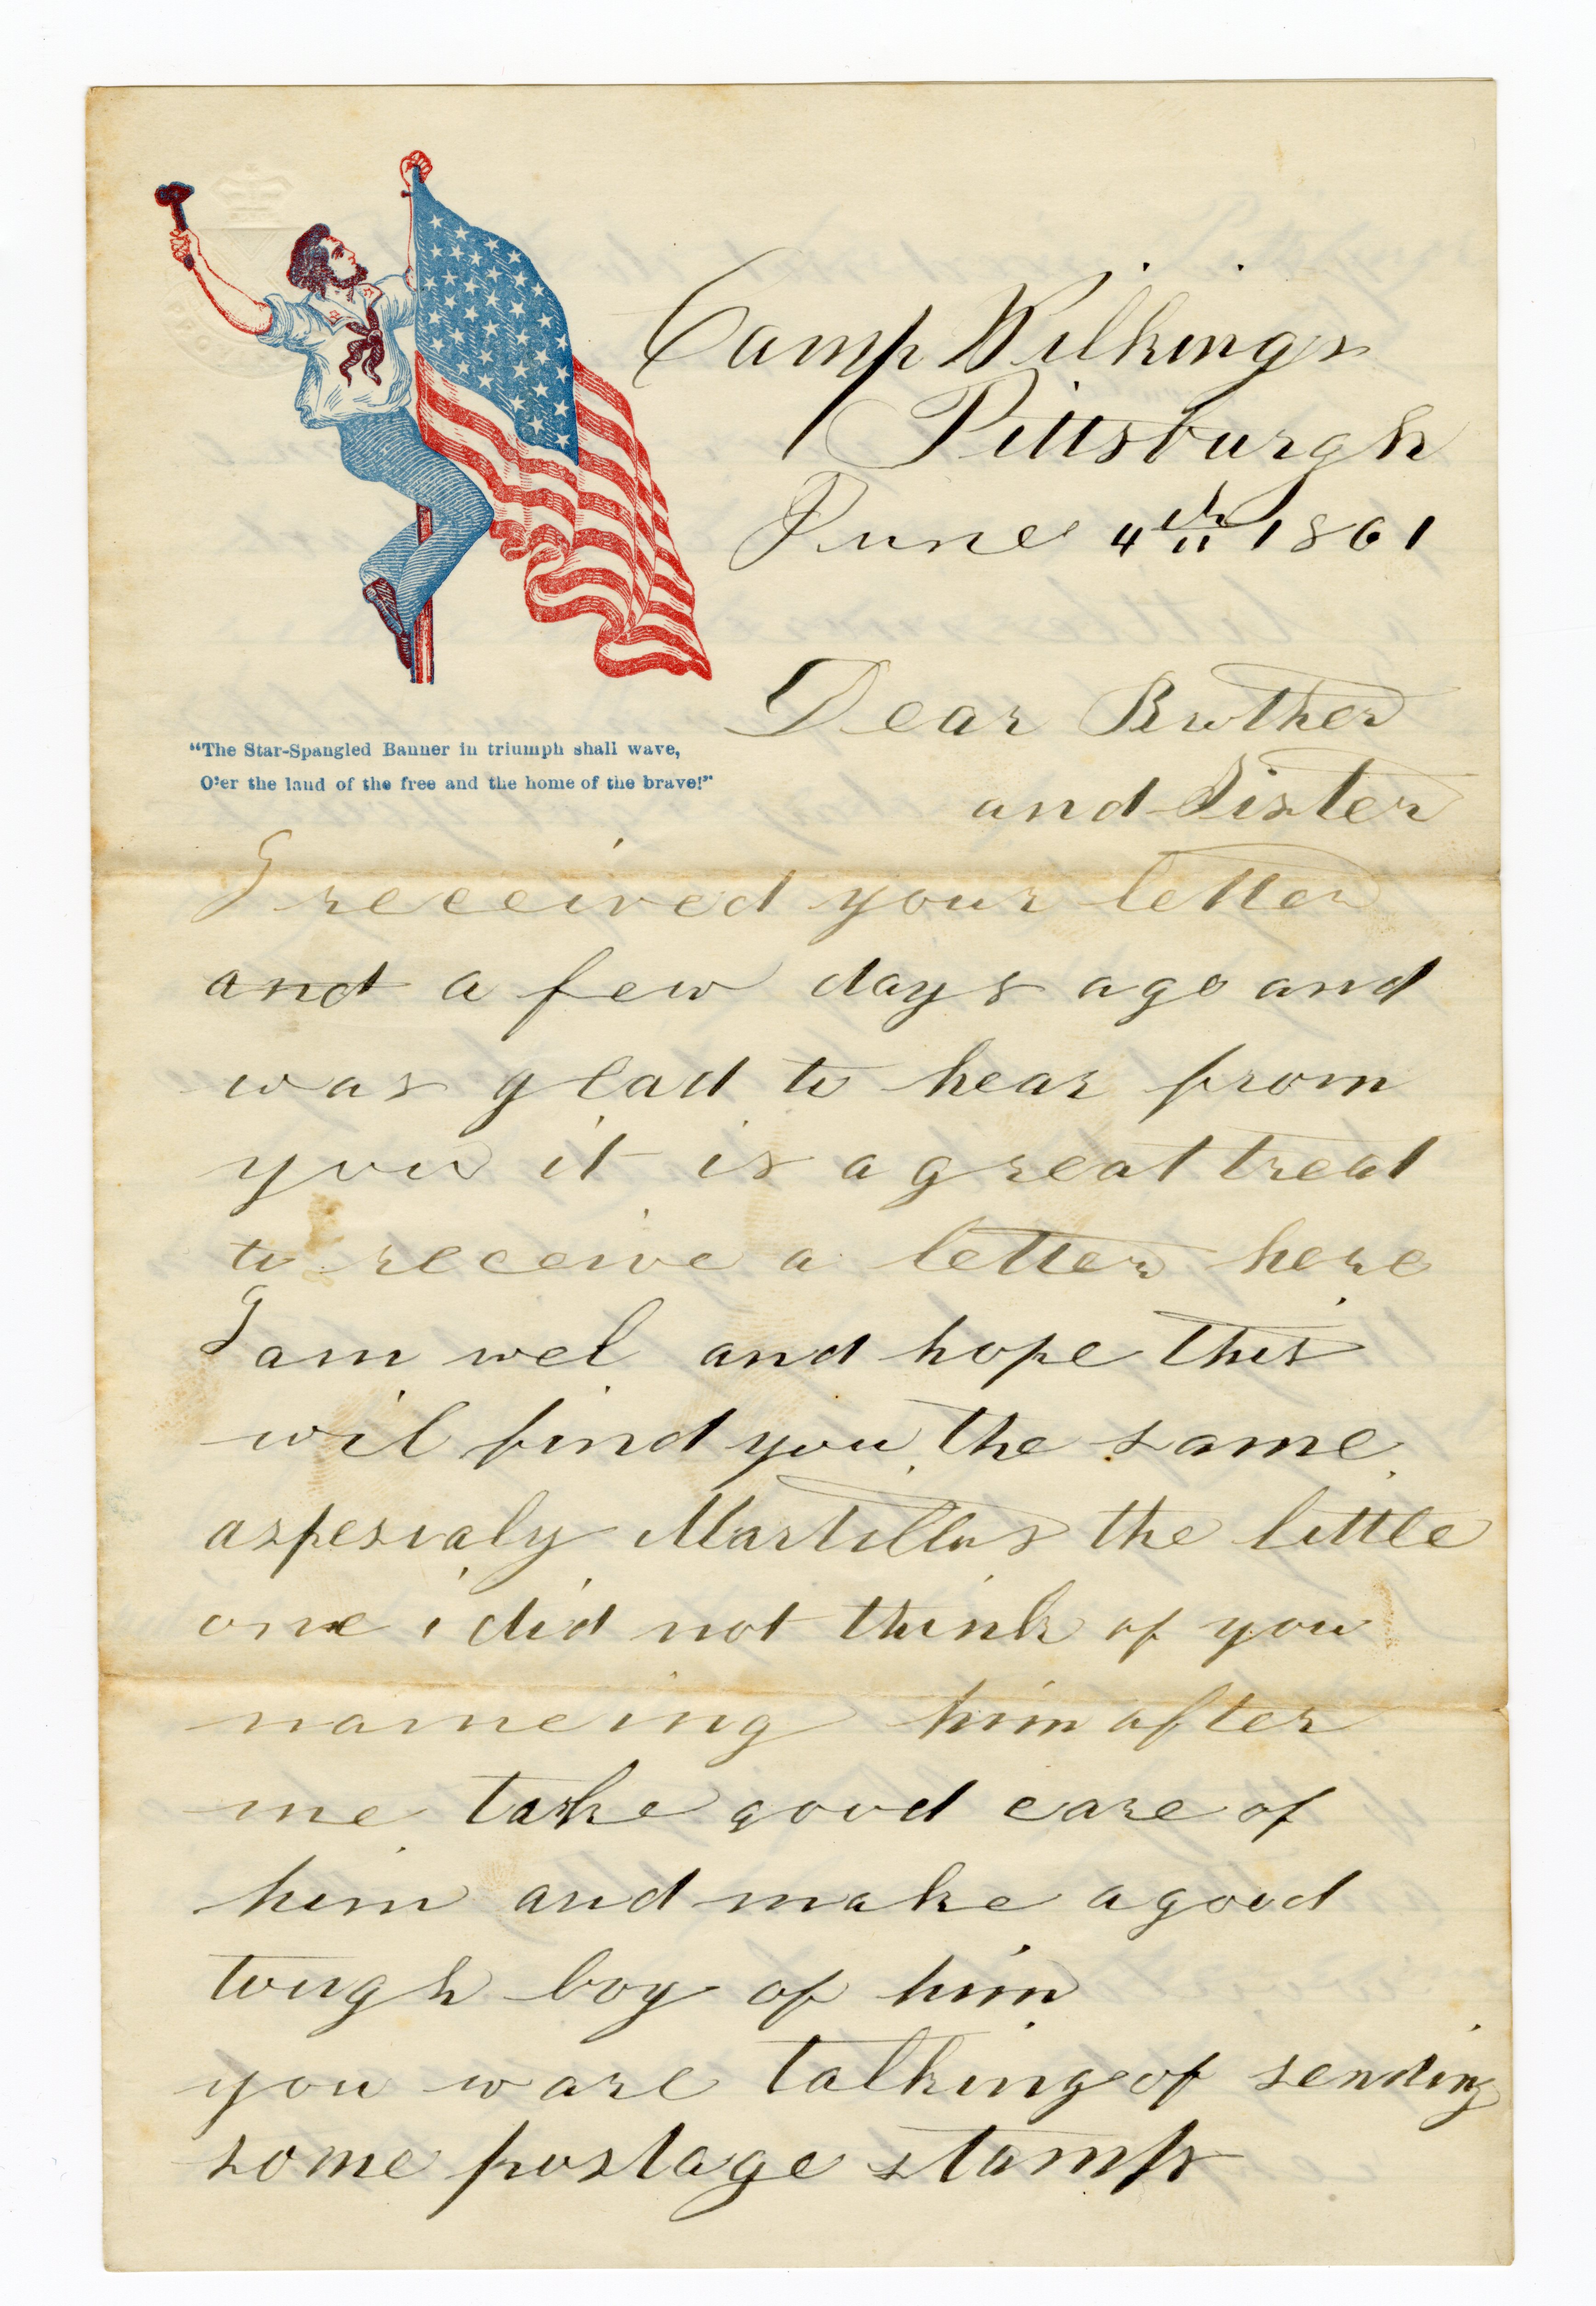 Camp Wilkings
Pittsburgh
June 4th 1861
"The Star-Spangled Banner in triumph shall wave,
O'er the land of the free and the home of the brave!"
Dear Brother
and Sister
I received your letter
and a few days ago and
was glad to hear from
you it is a great treat
to receive a letter here
I am wel and hope this
wil find you the same
aspesialy the little
one i did not think of you
nameing him after
me take good care of
him and make a good
tough boy of him
you ware talking of sending
some postage stamps